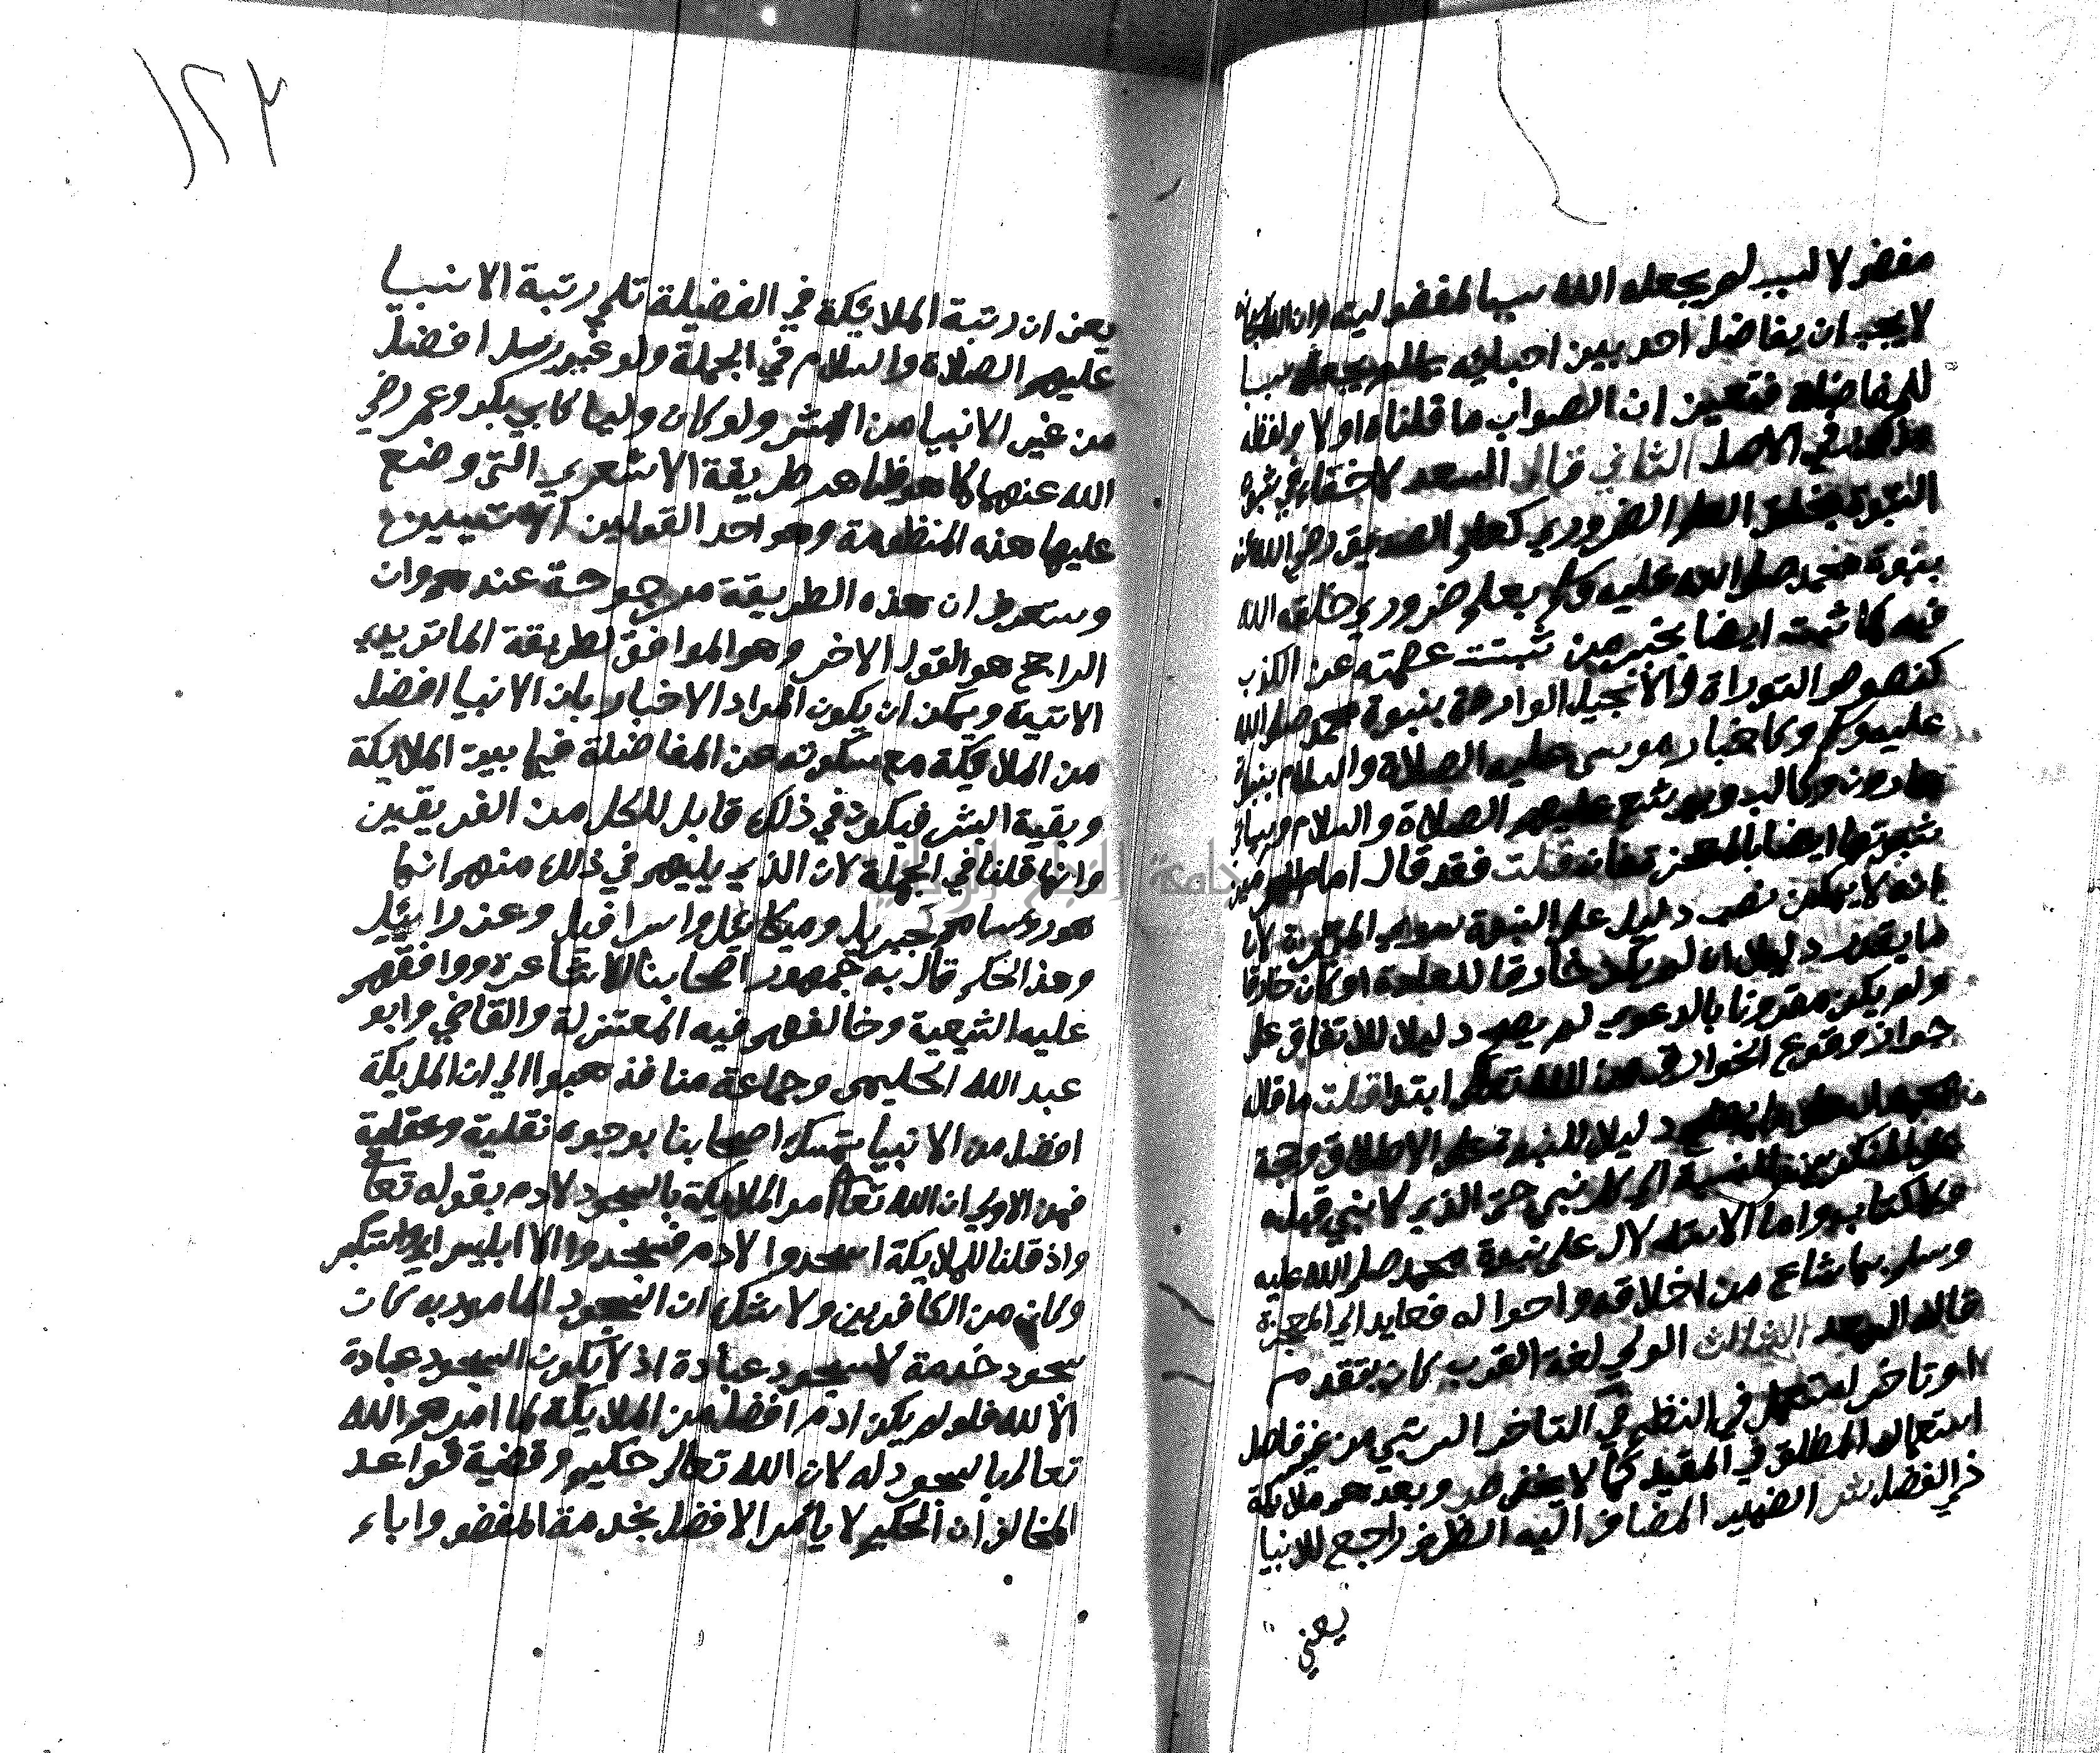 مفضولا لسبب لم يجعله الله سببا لمفضوليته وان الله
لا يجب ان يفاضل احد بين احبابه بما لم يجعله سببا
للمفاضلة فتعين ان الصواب ما قلناه اولا ولفظه
في الاصل الثاني قال السعد لا خفاء في ثبوت
النبوة بخلق العلم الضروري كعلم الصديق رضي الله عنه
بنبوة محمد صلى الله عليه وسلم بعلم ضروري خلقه الله
فيه كما ثبت ايضا بخبر من ثبتت عصمته عن الكذب
كنصوص التوراة والانجيل الواردة بنبوة محمد صلى الله
عليه وسلم وكاخبار موسى عليه الصلاة والسلام بنبوة
هارون وكالب ويوشع عليهم الصلاة والسلام
ثبوتها ايضا بالمعجزة فان قلت فقد قال امام الحرمين
انه لا يمكن نصب دليل على النبوة سوى المعجزة لان
ما يقدر دليلا ان لم يكن خارقا للعادة او كان خارقا
ولم يكن مقرونا بالدعوي لم يصح دليلا للاتفاق على
جواز وقوع الخوارق من الله تعالى ابتدا قلت ما قاله
محمول على ما يصلح دليلا للنبوة على الاطلاق وحجة
على المنكرين بالنسبة الى كل نبي حتى الذي لا نبي قبله
ولا كتاب واما الاستدلال على نبوة محمد صلى الله عليه
وسلم بما شاع من اخلاقه واحواله فعايد الي المعجزة
قاله السعد الثالث الولي لغة القرب كان بتقدم
او تاخر استعمل في النظم في التاخر الرتبي من غير فاصل
استعمال المطلق في المقيد كما لا يخفى ص وبعدهم ملايكة
ذي الفضل ش الضمير المضاف اليه الظرف راجع للانبيا
يعني
١٢٣
يعني ان رتبة الملائكة في الفضيلة تلي رتبة الانبيا
عليهم الصلاة والسلام في الجملة ولو غير رسل افضل
من غير الانبيا من البشر ولو كان وليا كابي بكر وعمر رضي
الله عنهما كما هو ظاهر طريقة الاشعري التي وضع
عليها هذه المنظومة وهو احد القولين الاتيين
وستعرف ان هذه الطريقة مرجوحة عندهم وان
الراجح هو القول الاخر وهو الموافق لطريقة الماتريدي
الاتية ويمكن ان يكون المراد الاخبار بان الانبيا افضل
من الملايكة مع سكوته عن المفاضلة فيما بين الملايكة
وبقية البشر فيكون في ذلك قابل للكل من الفريقين
وانما قلنا في الجملة لان الذي يليهم في ذلك منهم انما
هو روساهم كجبريل وميكائيل واسرافيل وعزرائيل
وهذا الحكم قال به جمهور اصحابنا الاشاعرة ووافقهم
عليه الشيعية وخالفهم فيه المعتزلة والقاضي وابو
عبد الله الحليمي وجماعة منا فذهبوا الي ان الملايكة
افضل من الانبيا تمسك اصحابنا بوجوه نقلية وعقلية
فمن الاولى ان الله تعا امر الملايكة بالسجود لادم بقوله تعا
واذ قلنا للملايكة اسجدوا لادم فسجدوا الا ابليس ابى واستكبر
وكان من الكافرين ولا شك ان السجود المامور به كان
سجود خدمة لا سجود عبادة اذ لا يكون السجود عبادة
الا لله فلو لم يكن ادم افضل من الملايكة لما امرهم الله
تعالى بالسجود له لان الله تعالى حكيم وقضية قواعد
المخالف ان الحكيم لا يأمر الافضل بخدمة المفضو واباء